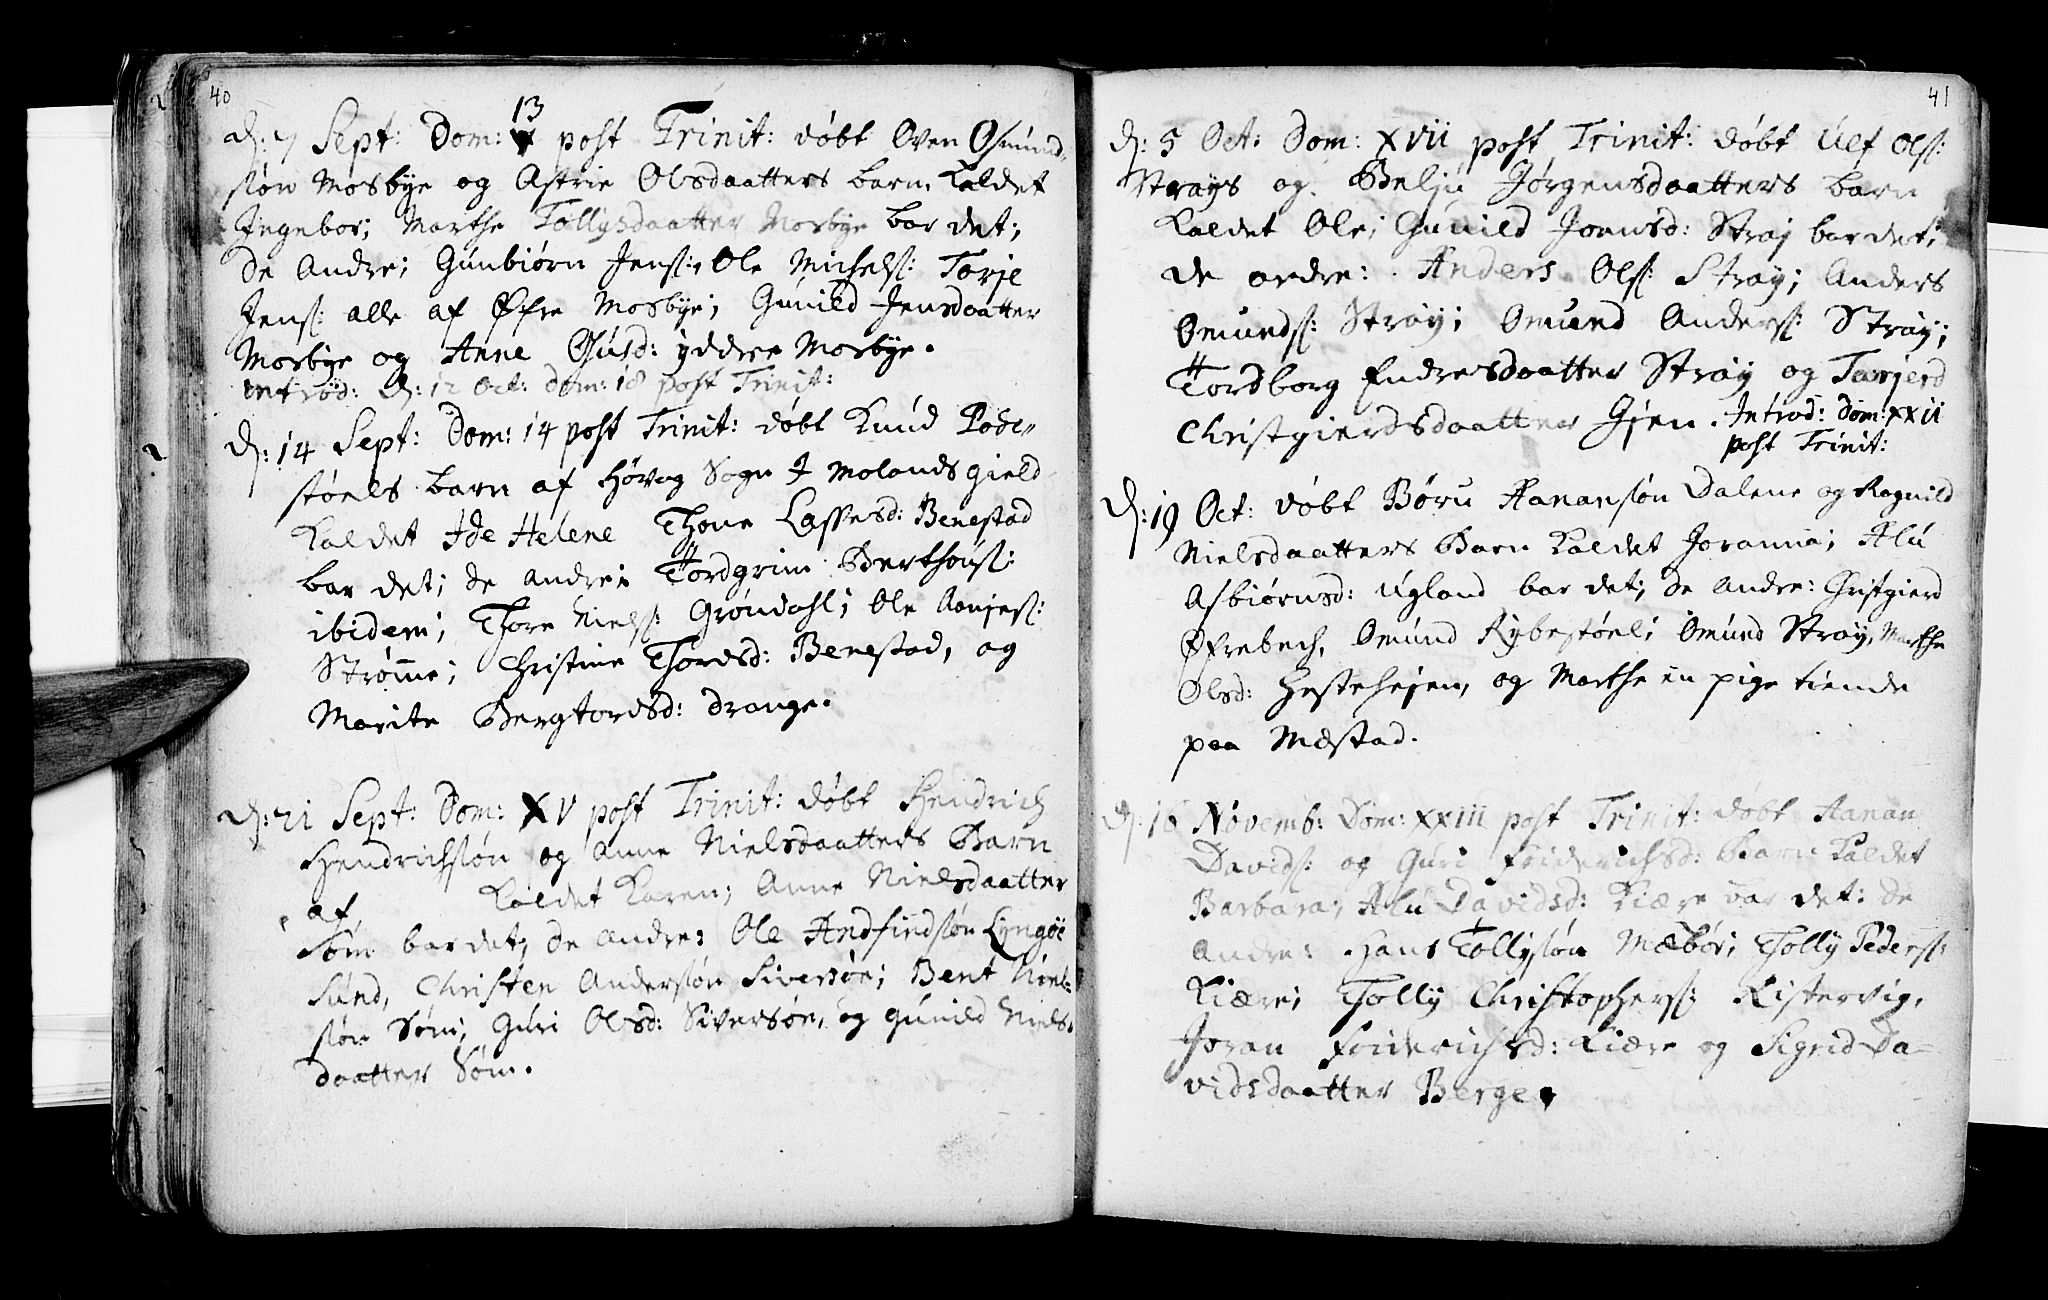 40
13
d: 7 Sept: Dom: post Trinit: døbt Oven Osmund-
søn Mosbye og Astrie Olsdaatters barn kaldet
Ingebor; Marthe Tollysdaatter Mosbye bar det;
de Andre; Gunbiørn Jens: Ole Michels: Torje
Jens: alle af Øfre Mosbye; Gunild Jensdaatter
Mosbye og Anne Gusd: yddre Mosbye.
introd: d: 12 Oct: Dom: 18 post Trinit:
d: 14 Sept: Dom: 14 post Trinit: døbt Knud Pode-
støels barn af Høvag Sogn I Molands gield
kaldet Ide Helene Thone Lassesd: Benestad
bar det; de andre; Tordgrim Berthous:
ibidem; Thore Niels: Grøndahl; Ole Aanjes:
Strømme; Christine Thordsd: Benestad, og
Marite Bergtorsd: drange.
d: 21 Sept: Dom: XV post Trinit: døbt Hendrich
Hendrichsøn og Anne Nielsdaatters Barn
af kaldet Karen; Anne Nielsdaatter
Søm bar det; de andre: Ole Andfindsøn Lyngøe
Sund, Christen Andersøn Siversøe; Bent Niel-
søn Søm; Guri Olsd: Siversøe, og Gunild Niels-
daatter Søm.
41
d: 5 Oct: Dom: XVII post Trinit: døbt Ulf Ols:
Strays og Belju Jørgensdaatters barn
kaldet Ole; Gunild Jonsd: Straj bar det;
de andre: Anders Ols: Stray; Anders
Omunds: Stray; Omund Anders: Stray;
Tordborg Endresdaatter Stray og Tarjerd
Christgierdsdaatter Gjen. Introd: Dom: XXII
post Trinit:
d: 19 Oct: døbt Børu Aanansøn Dalene og Ragnild
Nielsdaatters Barn kaldet Joranna; Alu
Asbiørnsd: Ugland bar det; de Andre: Christgierd
Øfrebech, Omund Rybestøel; Omund Stray, Marthe
Olsd: Hestehejen, og Marthe en pige tiende
paa Mæstad.
d: 16 Novemb: Dom: XXIII post Trinit: døbt Aanan
Davids: og Guri Friderichsd: Barn kaldet
Barbara; Alu Davidsd: Kiære bar det: de
Andre: Hans Tollysøn Mæbøe; Tolly Peders:
Kiære; Tolly Christophers: Kistervig,
Joran Friderichsd: Kiære og Sigrid Da-
vidsdaatter Berge.